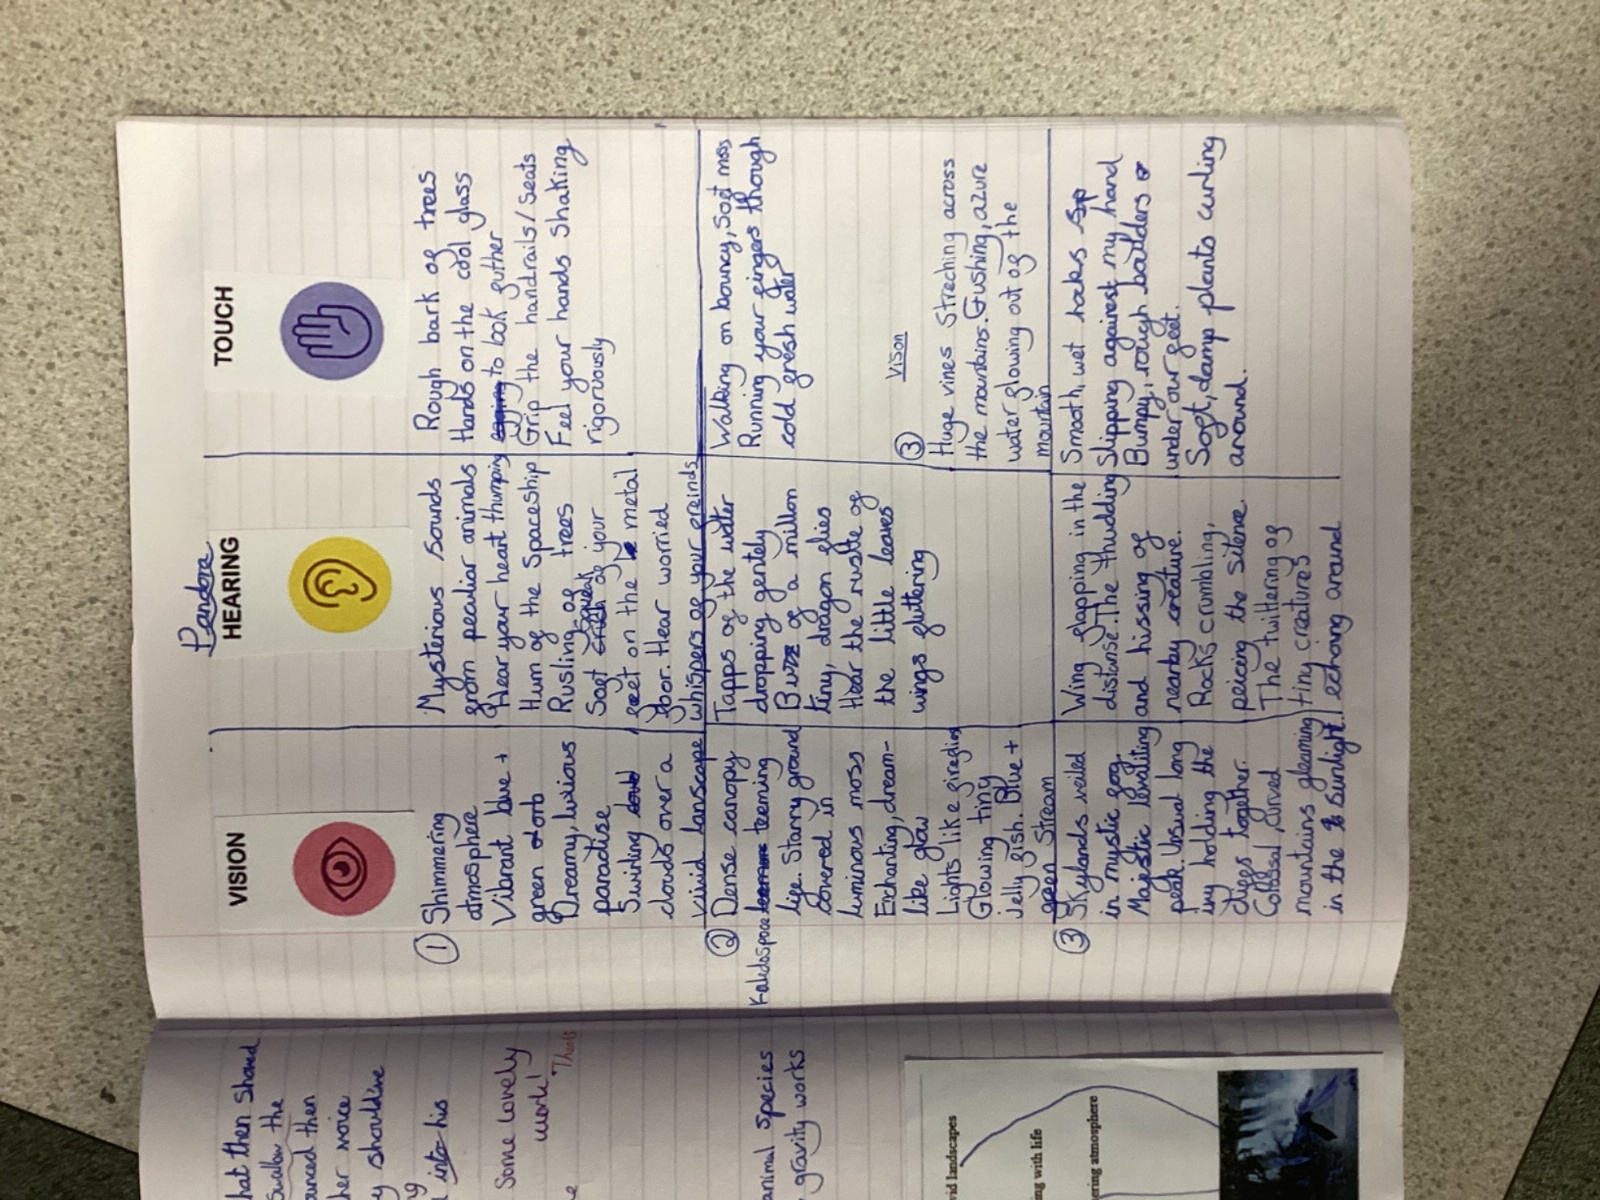 Pandora
VISION
HEARING
TOUCH
① Shimmering
atmosphere
Vibrant blue +
green
Dreamy, lusious
paradise
Swirling
clouds over a
vivid lanscape
Mysterious sounds
from peculiar animals
Hear your heart thumping
Hum of the Spaceship
Rusling of trees
Soft squeak of your
feet on the metal
floor. Hear worried
whispers of your freinds
Rough bark of trees
Hands on the cool glass
to look futher
Grip the handrails/seats
Feel your hands shaking
rigorously
② Dense canopy
Kalidospcae teeming
life. Starry ground
covered in
luminous moss
Enchanting, dream-
like glow
Lights like firefly
Glowing tiny
jelly fish. Blue +
green Stream
Tapps of the water
dropping gently
Buzz of a million
tiny, dragon flies
Hear the rustle of
the little leaves
wings fluttering
Walking on bouncy, Soft moss
Running your fingers though
cold fresh water
③ Vison
Huge vines Streching across
the mountains. Gushing, azure
water flowing out of the
mountain
③ Skylands veiled
in mystic fog.
Majestic levititing
peak. Usual long
ivy holding the
cliffs together.
Colossal, curved
mountains gleaming
in the Sunlight.
Wing flapping in the
distanse. The thudding
and hissing of
nearby creature.
Rocks crumbling,
peicing the silence
The twittering of
tiny creatures
echoing around
Smooth, wet rocks
Slipping againest my hand
Bumpy, rough boulders
under our feet.
Soft, damp plants curling
around.
hat then shared
Swallow the
ounced then
her voice
y should've
into his
Some lovely
work!
animal species
gravity works
vid landscapes
ng with life
ering atmosphere